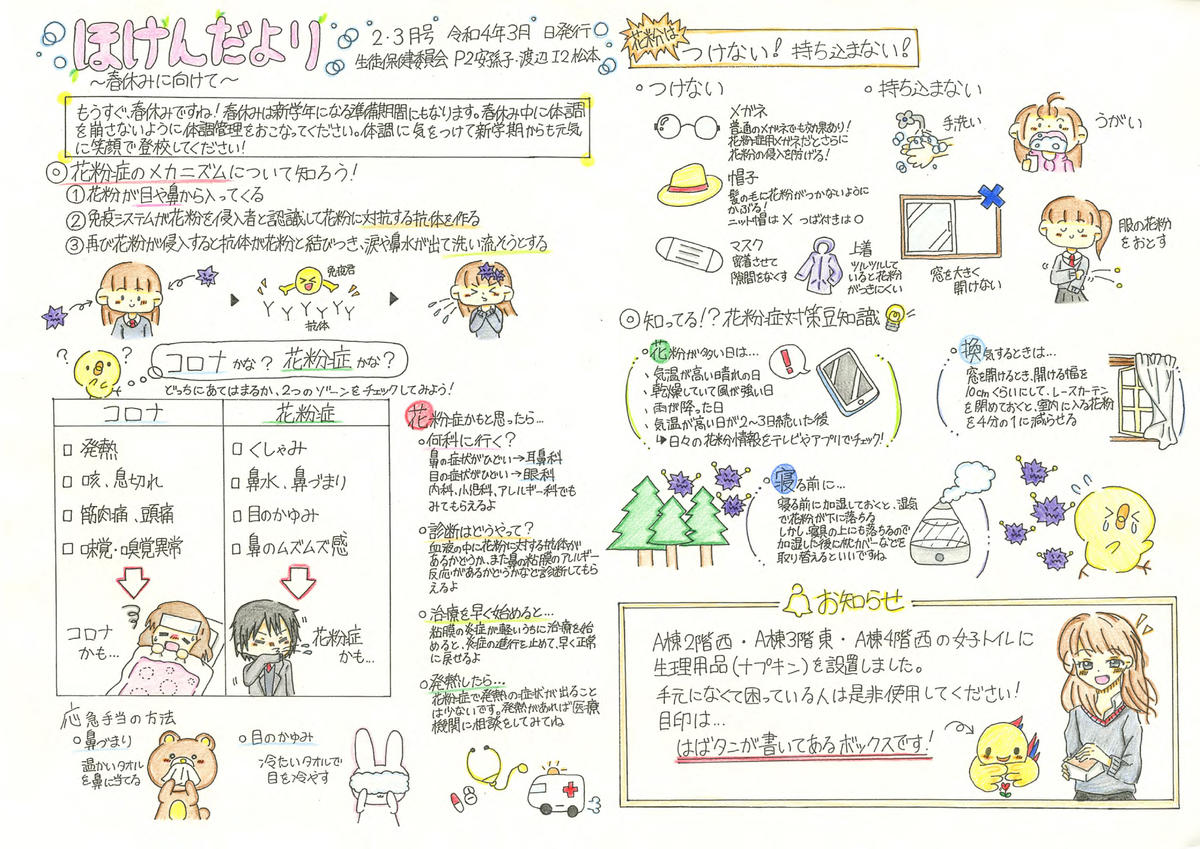 ほけんだより
2・3月号 令和4年3月 日発行
生徒保健委員会 P2安孫子・渡辺 I2松本
〜春休みに向けて〜
もうすぐ、春休みですね！春休みは新学年になる準備期間にもなります。春休み中に体調
を崩さないように体調管理をおこなってください。体調に気をつけて新学期からも元気
に笑顔で登校してください！
◎花粉症のメカニズムについて知ろう！
①花粉が目や鼻から入ってくる
②免疫システムが花粉を侵入者と認識して花粉に対抗する抗体を作る
③再び花粉が侵入すると抗体が花粉と結びつき、涙や鼻水が出て洗い流そうとする
免疫君
抗体
？ ？
コロナかな？花粉症かな？
どっちにあてはまるか、2つのゾーンをチェックしてみよう！
コロナ
□発熱
□咳、息切れ
□筋肉痛、頭痛
□味覚・嗅覚異常
コロナ
かも…
花粉症
□くしゃみ
□鼻水、鼻づまり
□目のかゆみ
□鼻のムズムズ感
花粉症
かも…
花粉症かもと思ったら…
○何科に行く？
鼻の症状がひどい→耳鼻科
目の症状がひどい→眼科
内科、小児科、アレルギー科でも
みてもらえるよ
○診断はどうやって？
血液の中に花粉に対する抗体が
あるかどうか、また鼻の粘膜のアレルギー
反応があるかどうかなど診断してもら
えるよ
○治療を早く始めると…
粘膜の炎症が軽いうちに治療を始
めると、炎症の進行を止めて、早く正常
に戻せるよ
○発熱したら…
花粉症で発熱の症状が出ること
は少ないです。発熱があれば医療
機関に相談をしてみてね
応急手当の方法
○鼻づまり
温かいタオル
を鼻に当てる
○目のかゆみ
冷たいタオルで
目を冷やす
花粉は
つけない！持ち込まない！
○つけない
メガネ
普通のメガネでも効果あり！
花粉症用メガネだとさらに
花粉の侵入を防げる！
帽子
髪の毛に花粉がつかないように
かぶる！
ニット帽は× つば付きは○
マスク
密着させて
隙間をなくす
上着
ツルツルして
いると花粉
がつきにくい
○持ち込まない
手洗い
うがい
窓を大きく
開けない
服の花粉
をおとす
◎知ってる！？花粉症対策豆知識
○花粉が多い日は…
、気温が高い晴れの日
、乾燥していて風が強い日
、雨が降った日
、気温が高い日が2〜3日続いた後
↳日々の花粉情報をテレビやアプリでチェック！
！
○換気するときは…
窓を開けるとき、開ける幅を
10cmくらいにして、レースカーテン
を閉めておくと、室内に入る花粉
を4分の1に減らせる
○寝る前に…
寝る前に加湿しておくと、湿気
で花粉が下に落ちる
しかし、寝具の上にも落ちるので
加湿した後に枕カバーなどを
取り替えるといいですね
お知らせ
A棟2階西・A棟3階東・A棟4階西の女子トイレに
生理用品(ナプキン)を設置しました。
手元になくて困っている人は是非使用してください！
目印は…
はばタニが書いてあるボックスです！